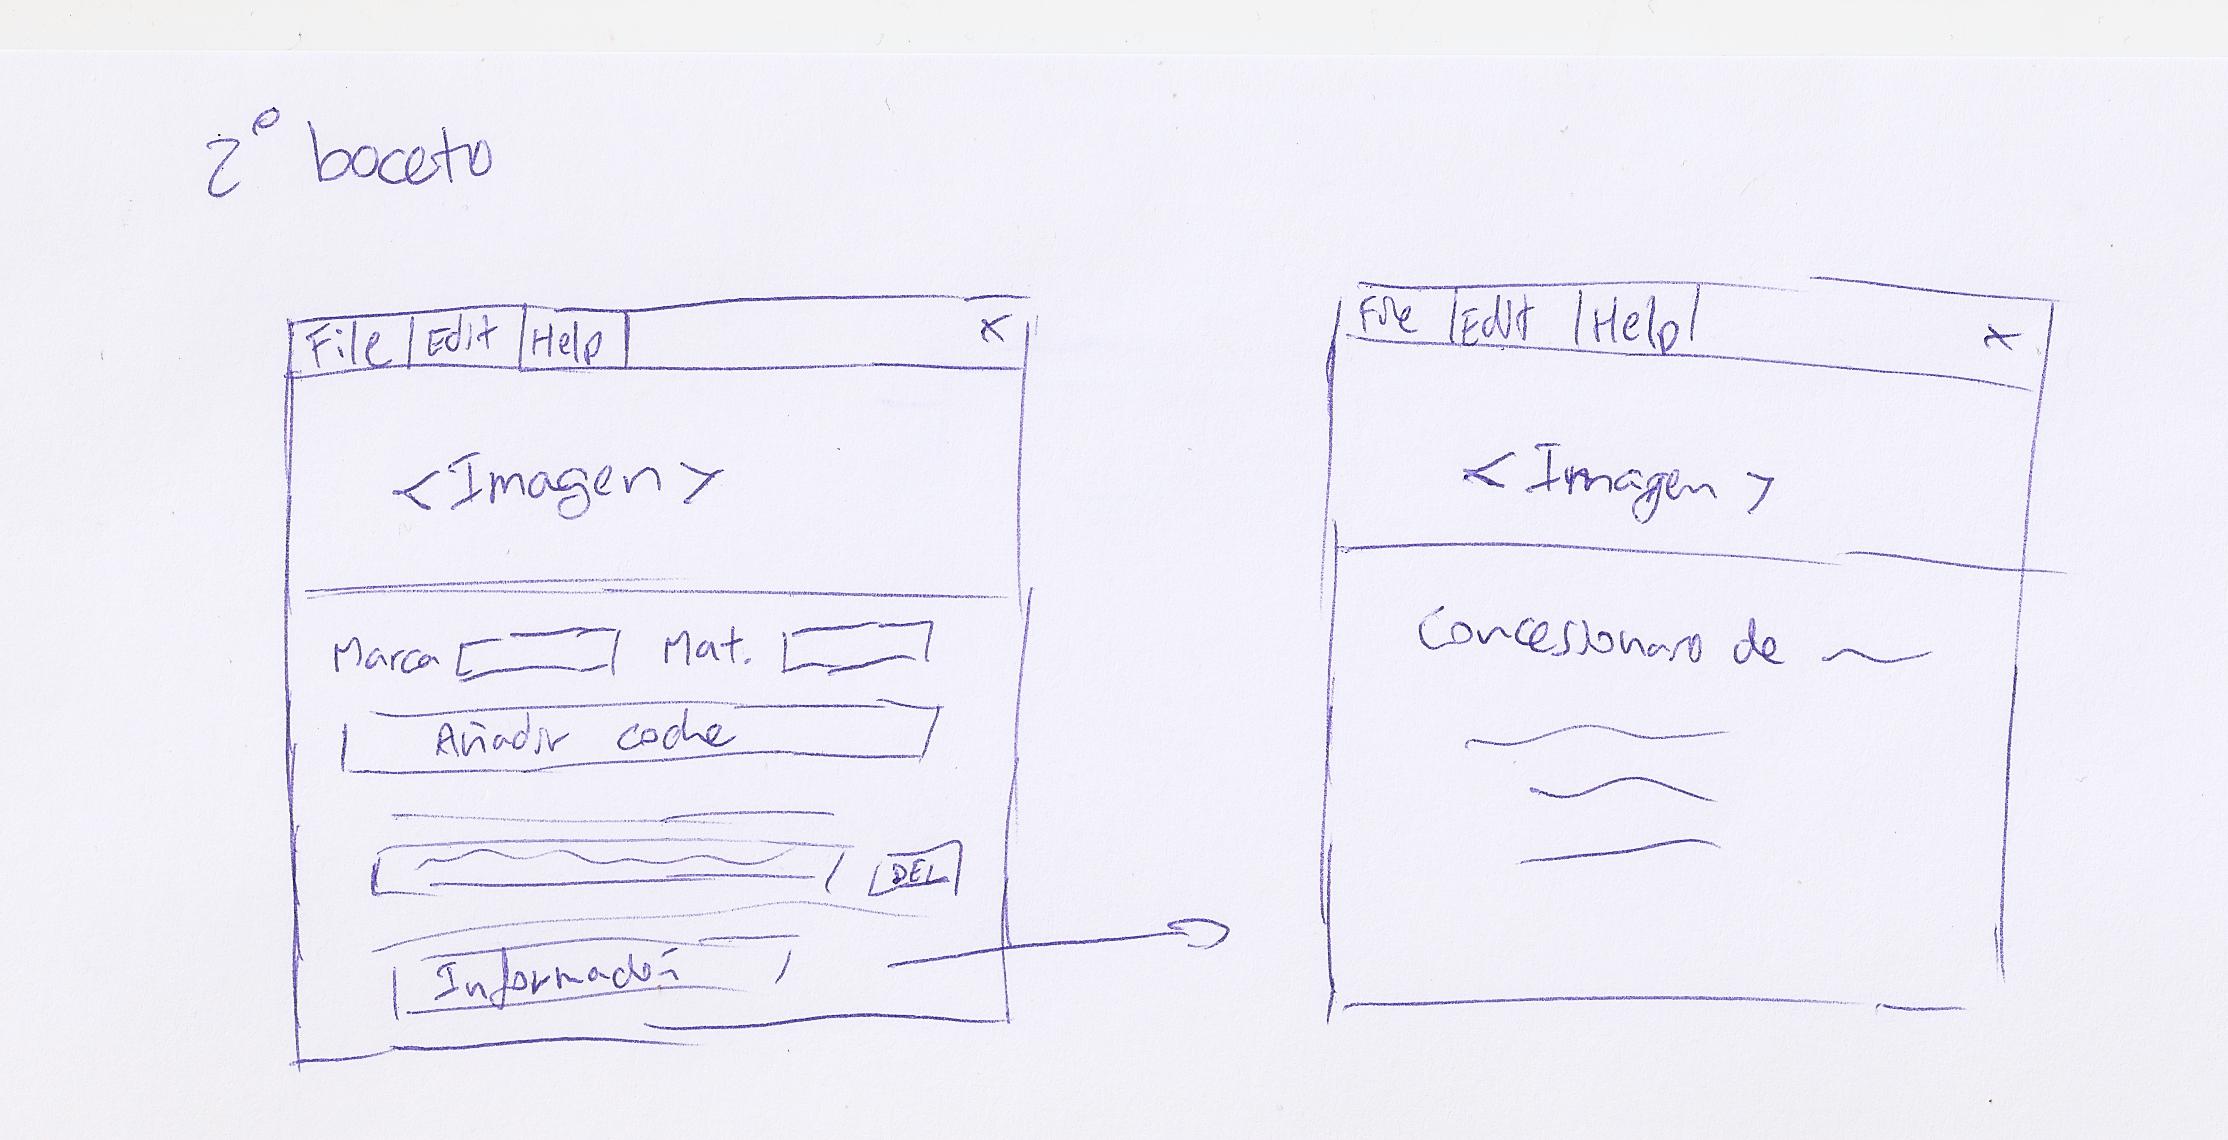 2º boceto
File Edit Help x
<Imagen>
Marca Mat.
Añadir coche
DEL
Información
File Edit Help x
<Imagen>
Concesionario de